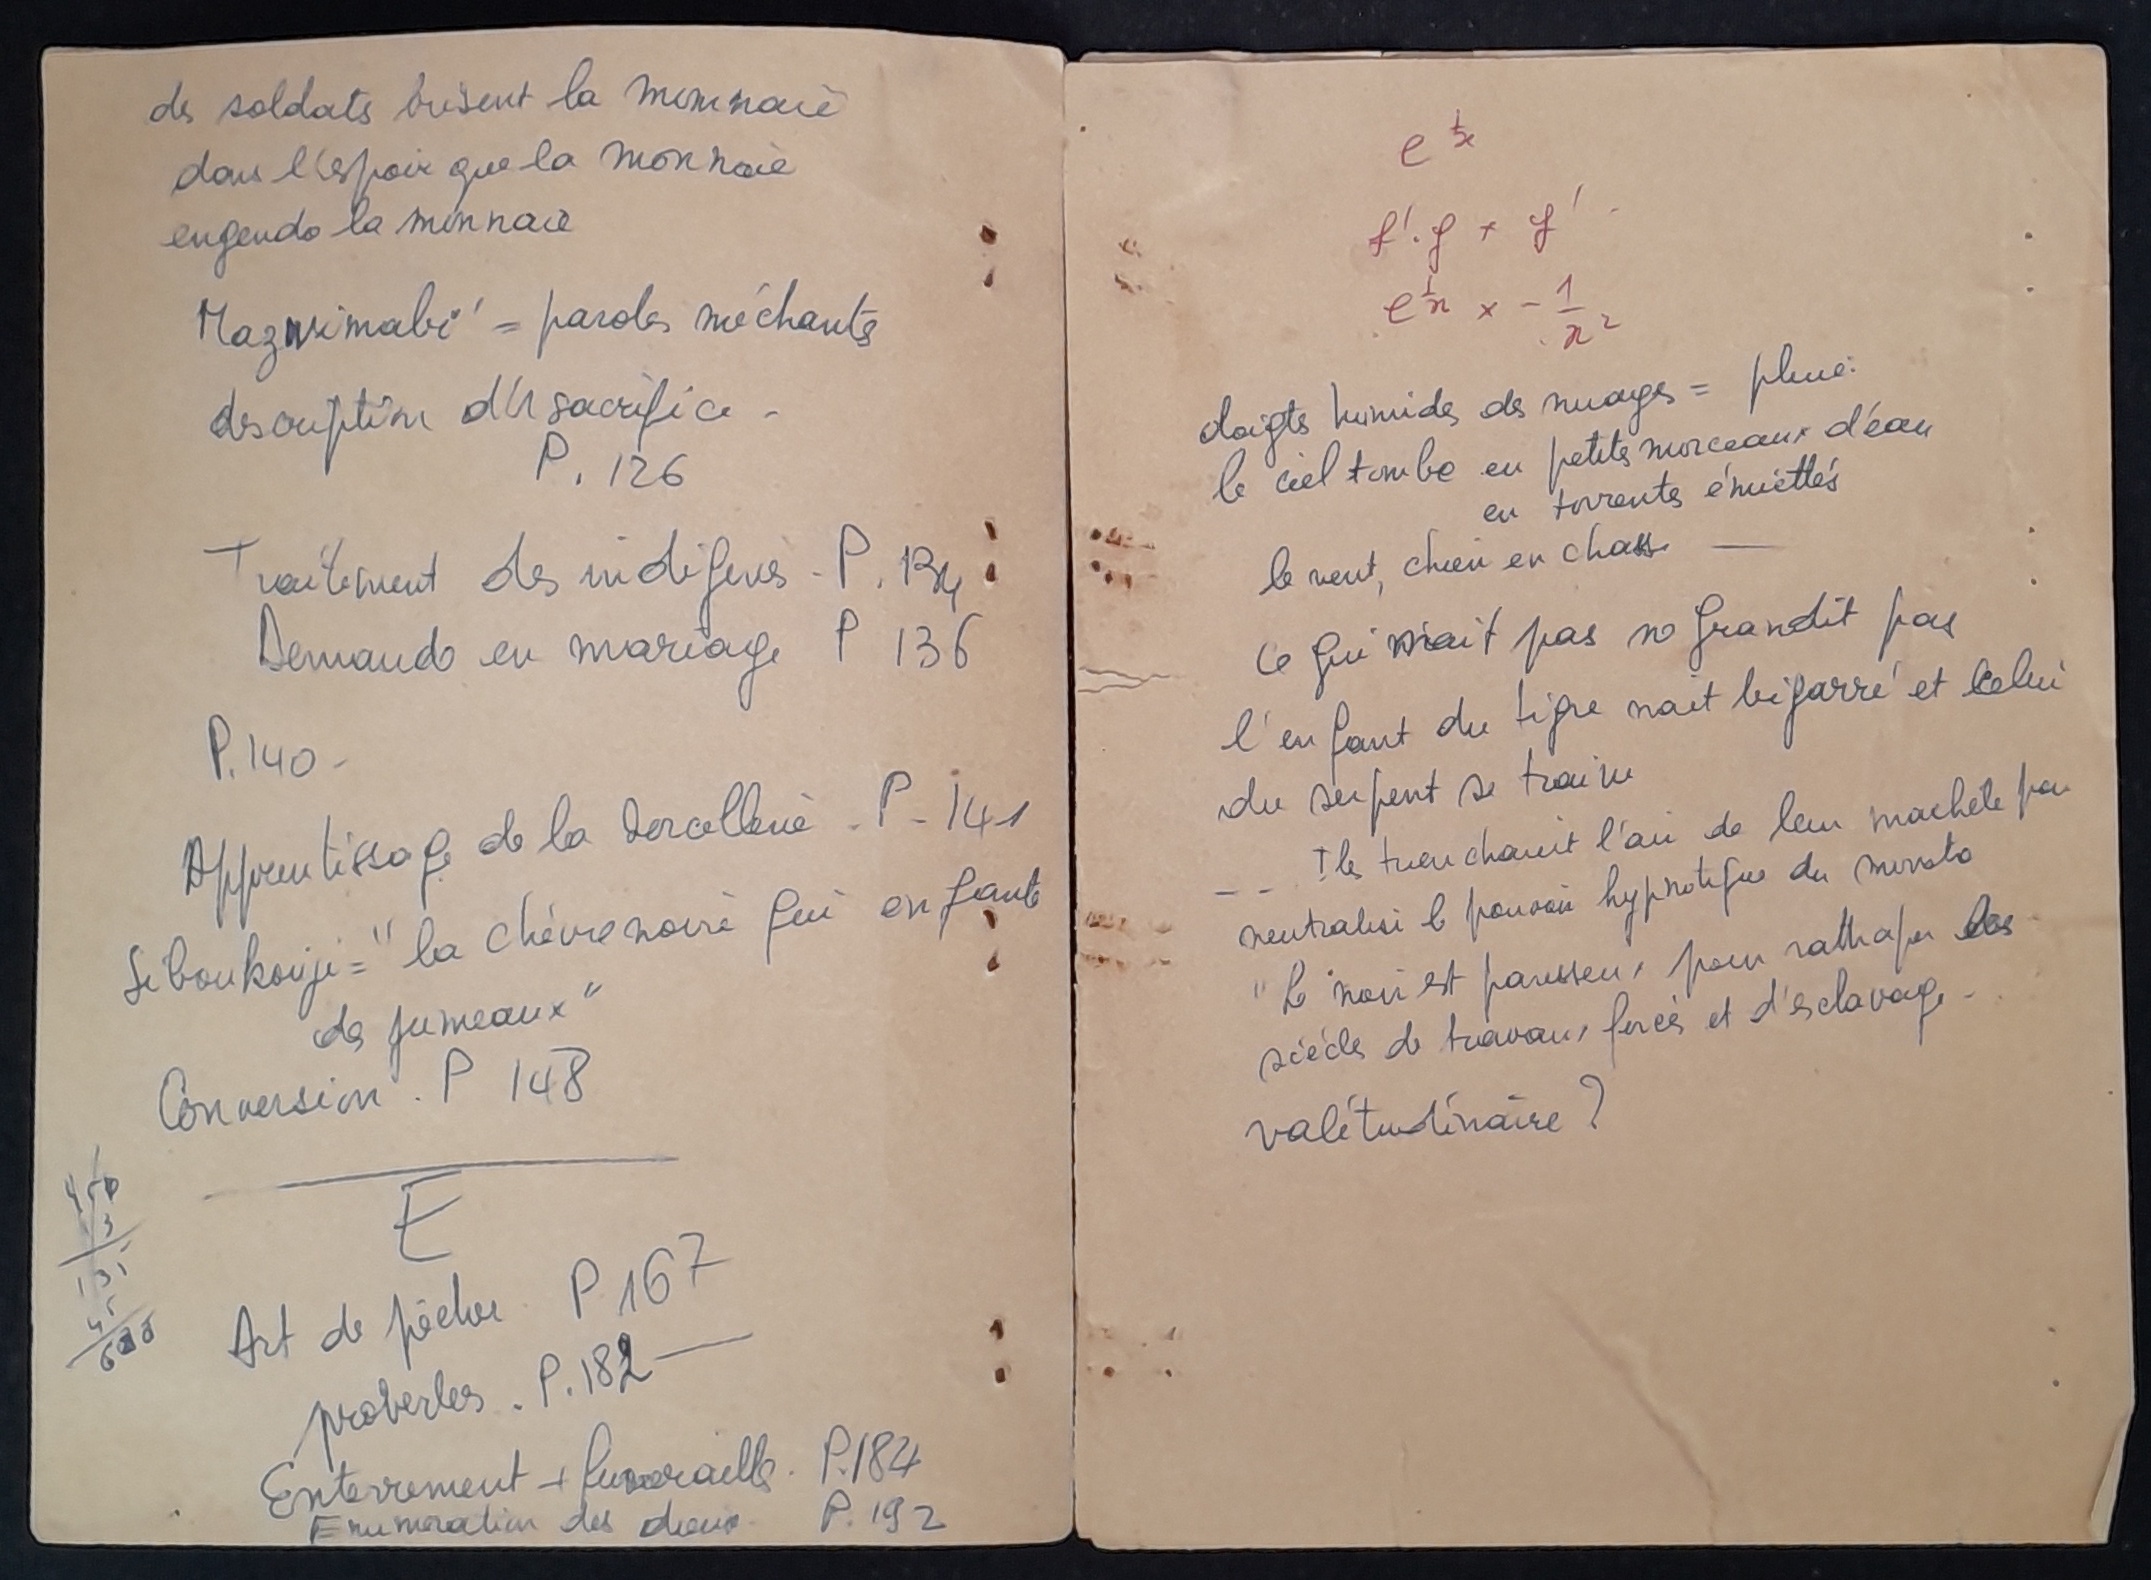 des soldats brisent la monnaie
dans l'espoir que la monnaie
engendre la monnaie
= paroles méchantes
description d'1 sacrifice -
P. 126
Traitement des indigènes - P. 134
Demande en mariage P 136
P. 140 -
Apprentissage de la sorcellerie - P - 141
= "la chèvre noire qui enfante
des jumeaux"
Conversion . P 148
E
Art de pêcher P 167
proverbes . P. 182 —
Enterrement + funérailles . P. 184
Enumération des dieux P. 192
450
3
e^{1/x}
f'.g + g'
e^{1/x} × - 1/x²
doigts humides des nuages = pluie
le ciel tombe en petits morceaux d'eau
en torrents émiettés
le vent, chien en chasse —
Ce qui nait pas ne grandit pas
l'enfant du tigre nait bigarré et celui
du serpent se traine
-- Ils tranchaient l'air de leur machette pour
neutraliser le pouvoir hypnotique du
"Le noir est paresseux pour rattraper les
siècles de travaux forcés et d'esclavage -
valétudinaire ?